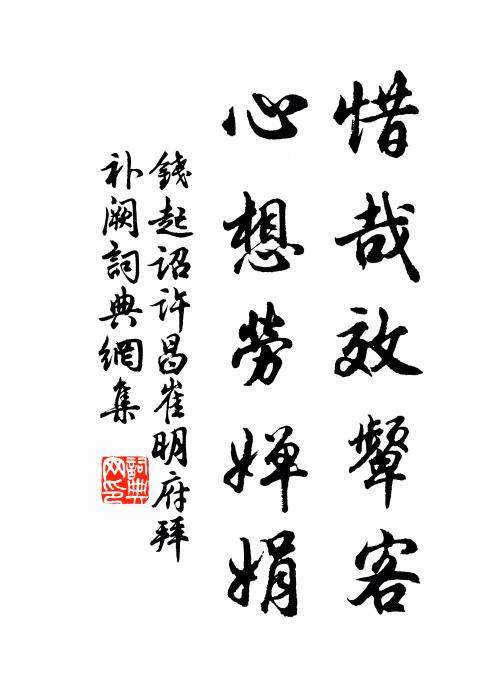 惜哉效顰客
心想勞嬋娟
錢起詔許昌崔明府拜
补闕詞典網集
詞典网印